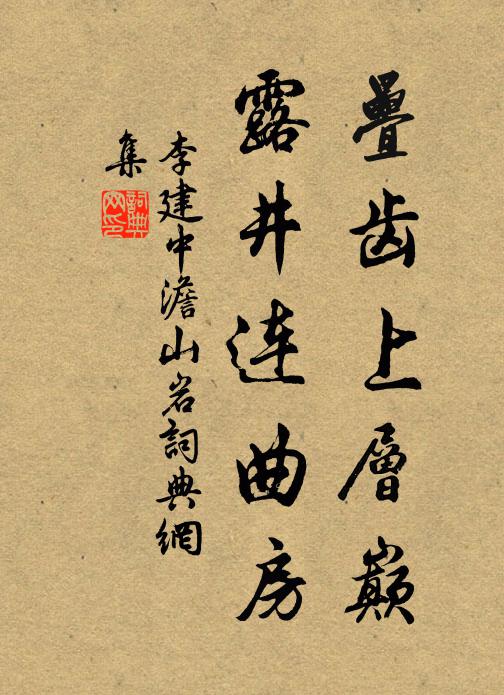 疊齿上層巔
露井连曲房
李建中澹山岩詞典網
集
詞典网印